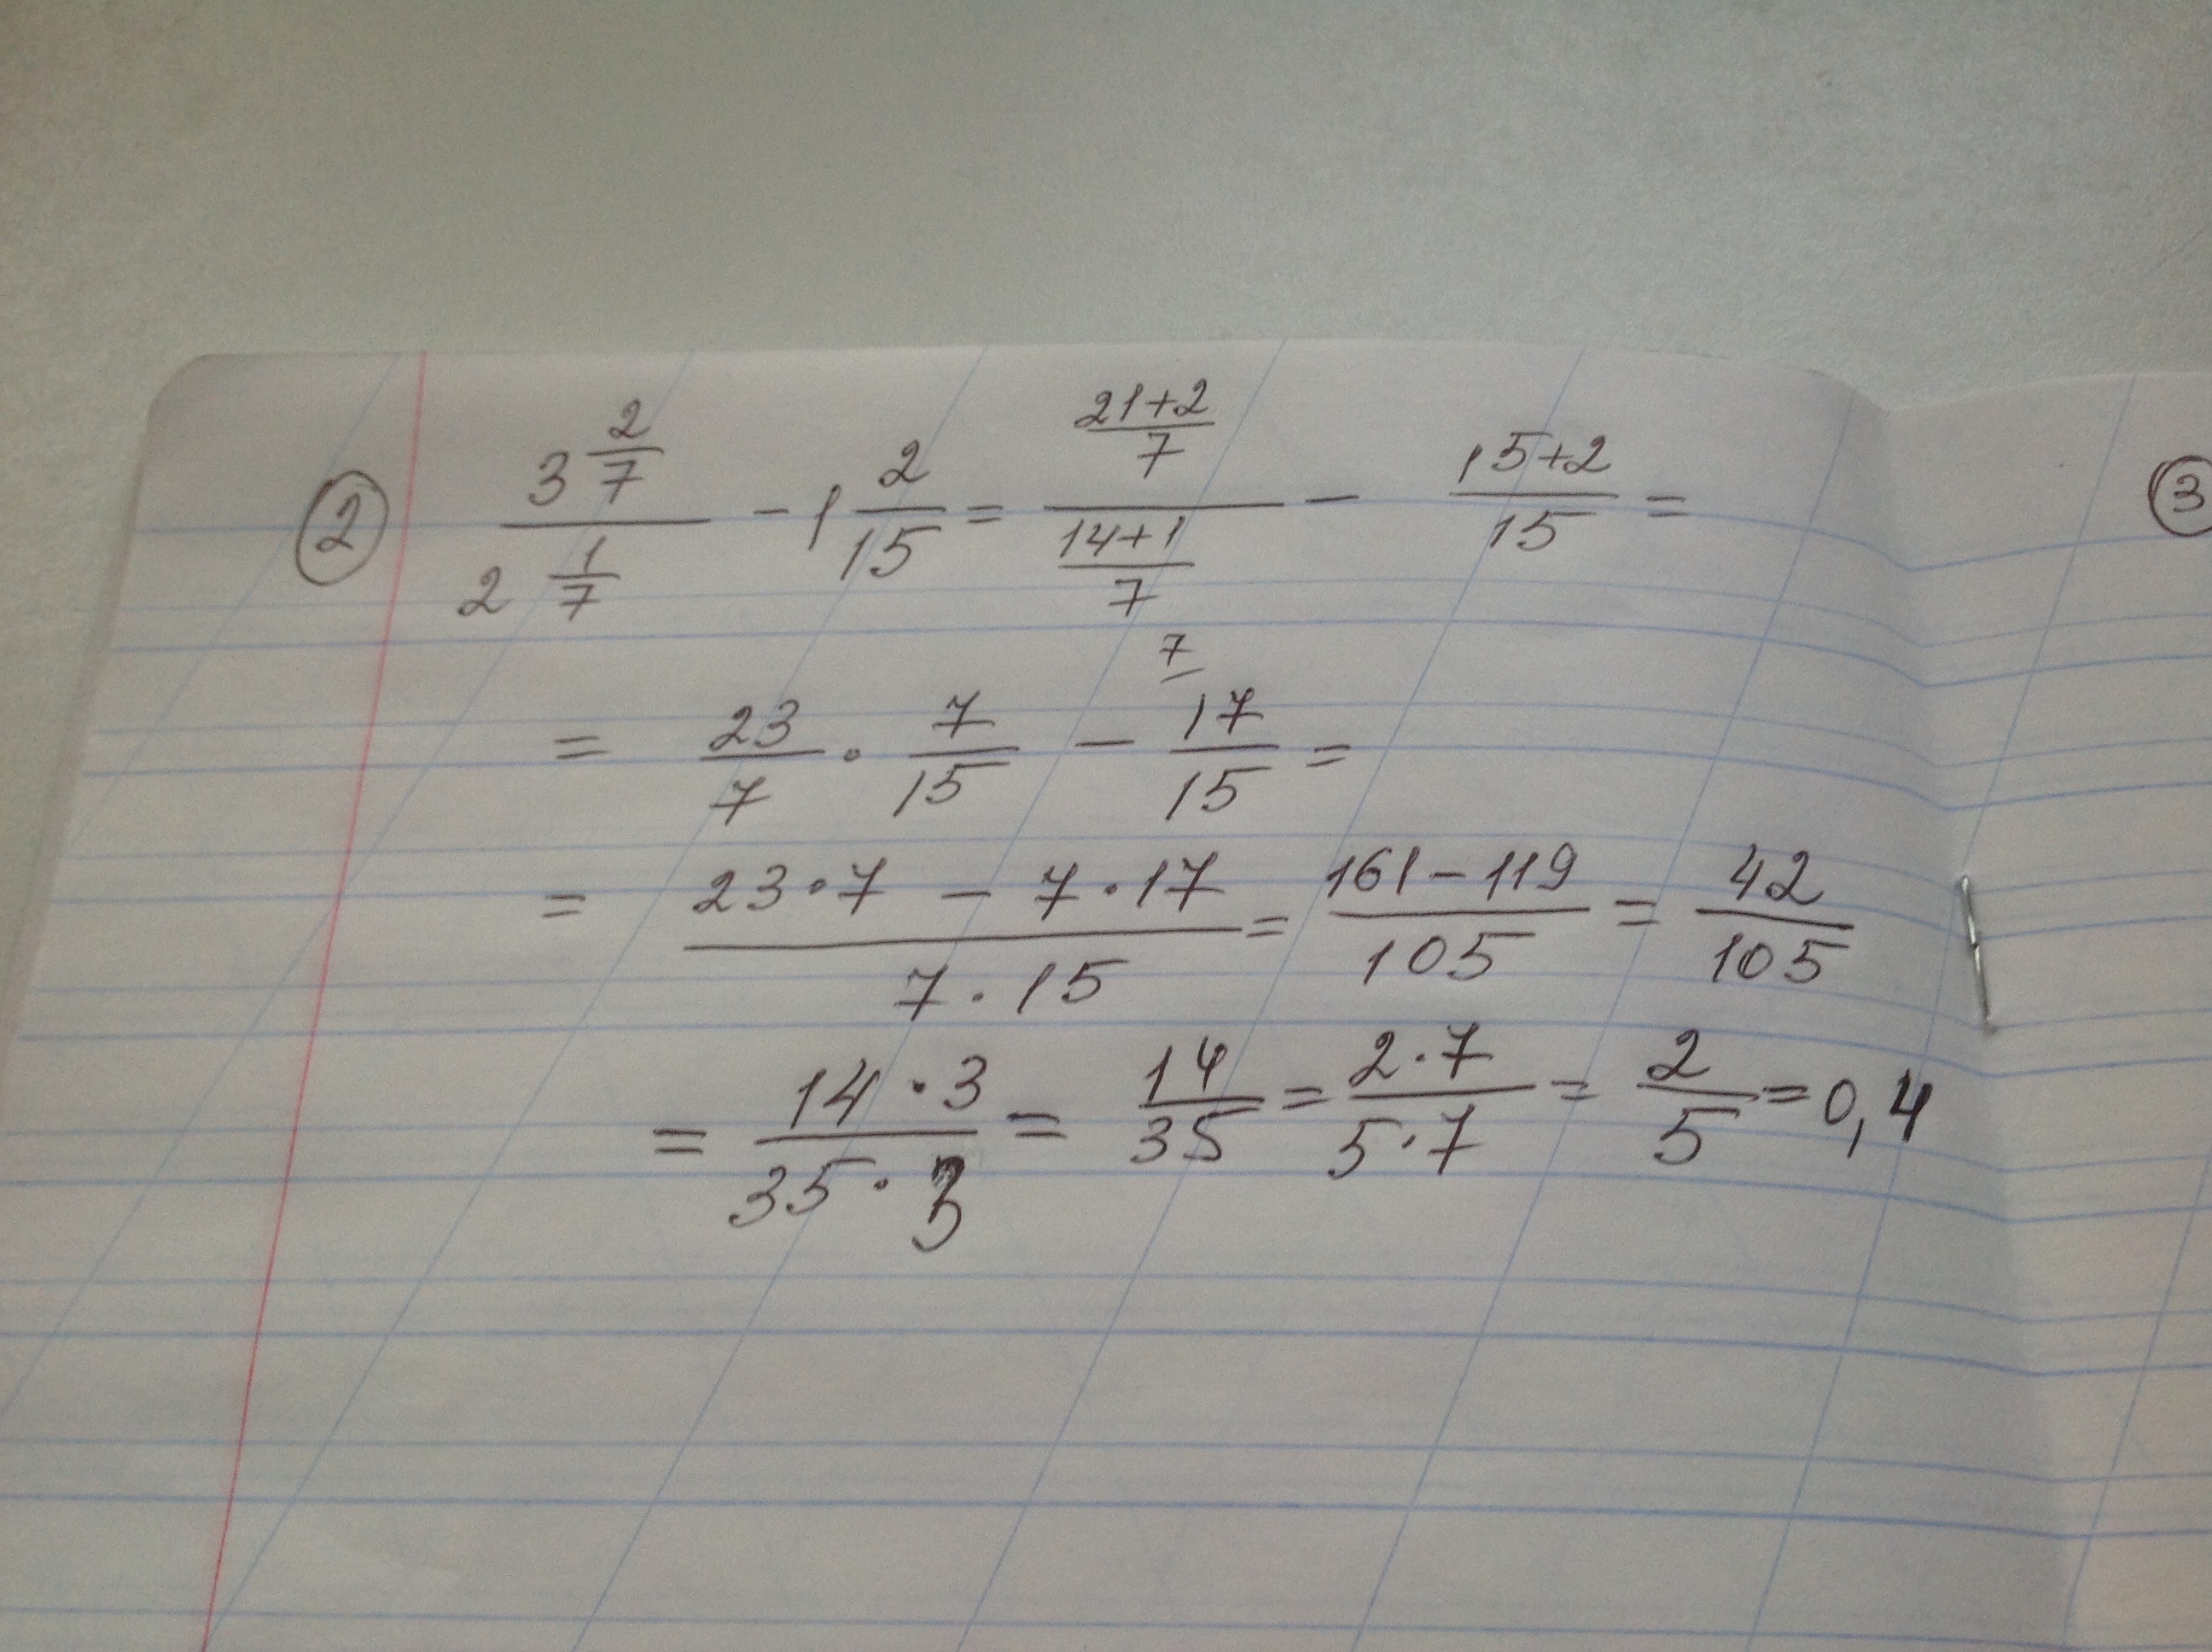 ② (3 2/7)/(2 1/7) - 1 2/15 = ((21+2)/7)/((14+1)/7) - (15+2)/15 =
7
= 23/7 · 7/15 - 17/15 =
= (23·7 - 7·17)/(7·15) = (161-119)/105 = 42/105
= (14·3)/(35·3) = 14/35 = (2·7)/(5·7) = 2/5 = 0,4
③